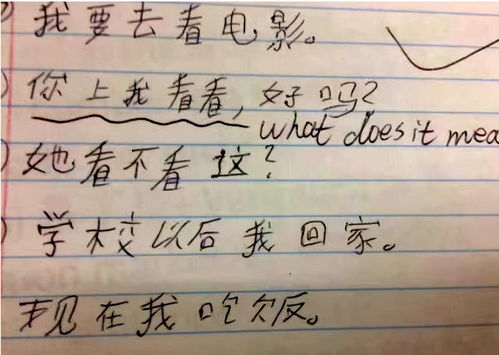 我要去看电影。
你上我看看,好吗?
what does it mea
她看不看这?
学校以后我回家。
现在我吃饭。